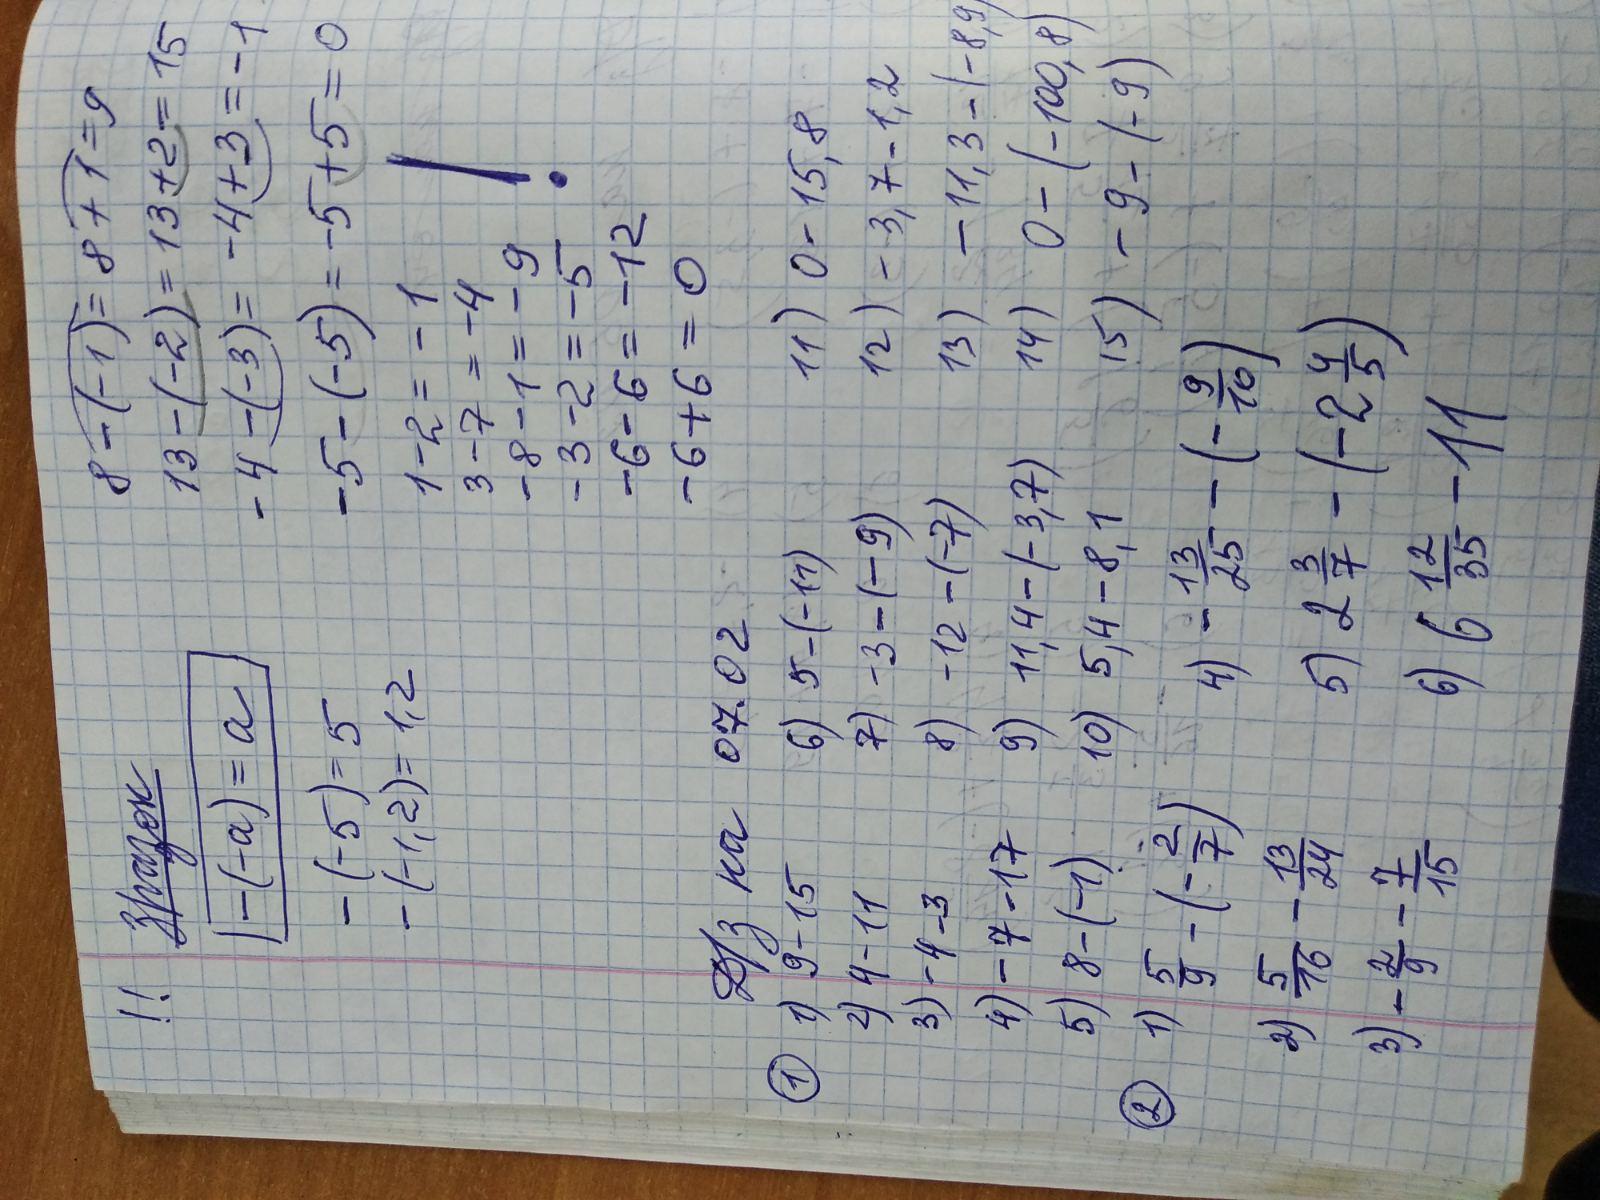 !! Зразок
-(-a) = a
-(-5) = 5
-(-1,2) = 1,2
8-(-1) = 8+1=9
13-(-2) = 13+2=15
-4-(-3) = -4+3=-1
-5-(-5) = -5+5=0
1-2 = -1
3-7 = -4
-8-1 = -9
-3-2 = -5
-6-6 = -12
-6+6 = 0
!
Д/з на 07.02
① 1) 9-15
2) 4-11
3) -4-3
4) -7-17
5) 8-(-1)
6) 5-(-11)
7) -3-(-9)
8) -12-(-7)
9) 11,4-(-3,7)
10) 5,4-8,1
11) 0-15,8
12) -3,7-1,2
13) -11,3-(-8,9)
14) 0-(-100,8)
15) -9-(-9)
② 1) 5/9 - (-2/7)
2) 5/16 - 13/24
3) -2/9 - 7/15
4) -13/25 - (-9/10)
5) 2 3/7 - (-2 4/5)
6) 6 12/35 - 11